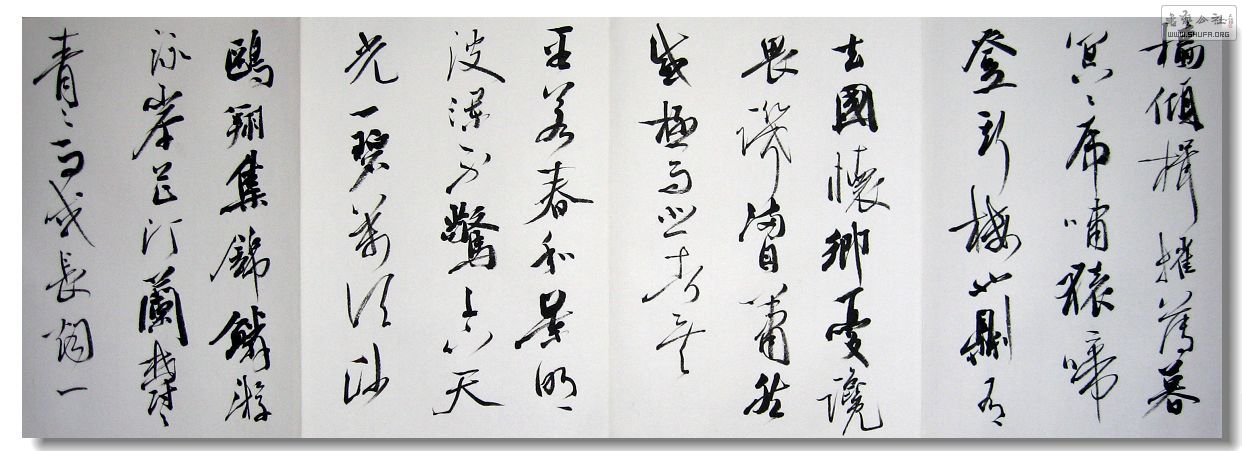 檣傾楫摧薄暮
冥々虎嘯猿啼
登斯樓也則有
去國懷鄉憂讒
畏譏滿目蕭然
感極而悲者矣
至若春和景明
波瀾不驚上下天
光一碧萬頃沙
鷗翔集錦鱗游
泳岸芷汀蘭鬱々
青々而或長煙一
书艺公社
WWW.SHUFA.ORG